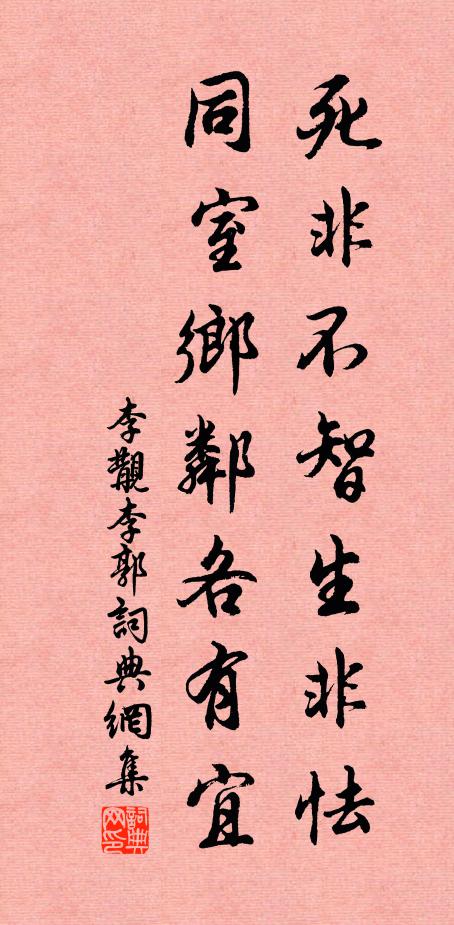 死非不智生非怯
同室鄉鄰各有宜
李覯李郭詞典網集
詞典网印